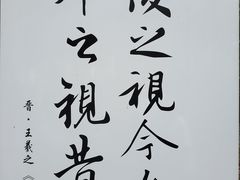 後之視今
之視昔
晉·王羲之《